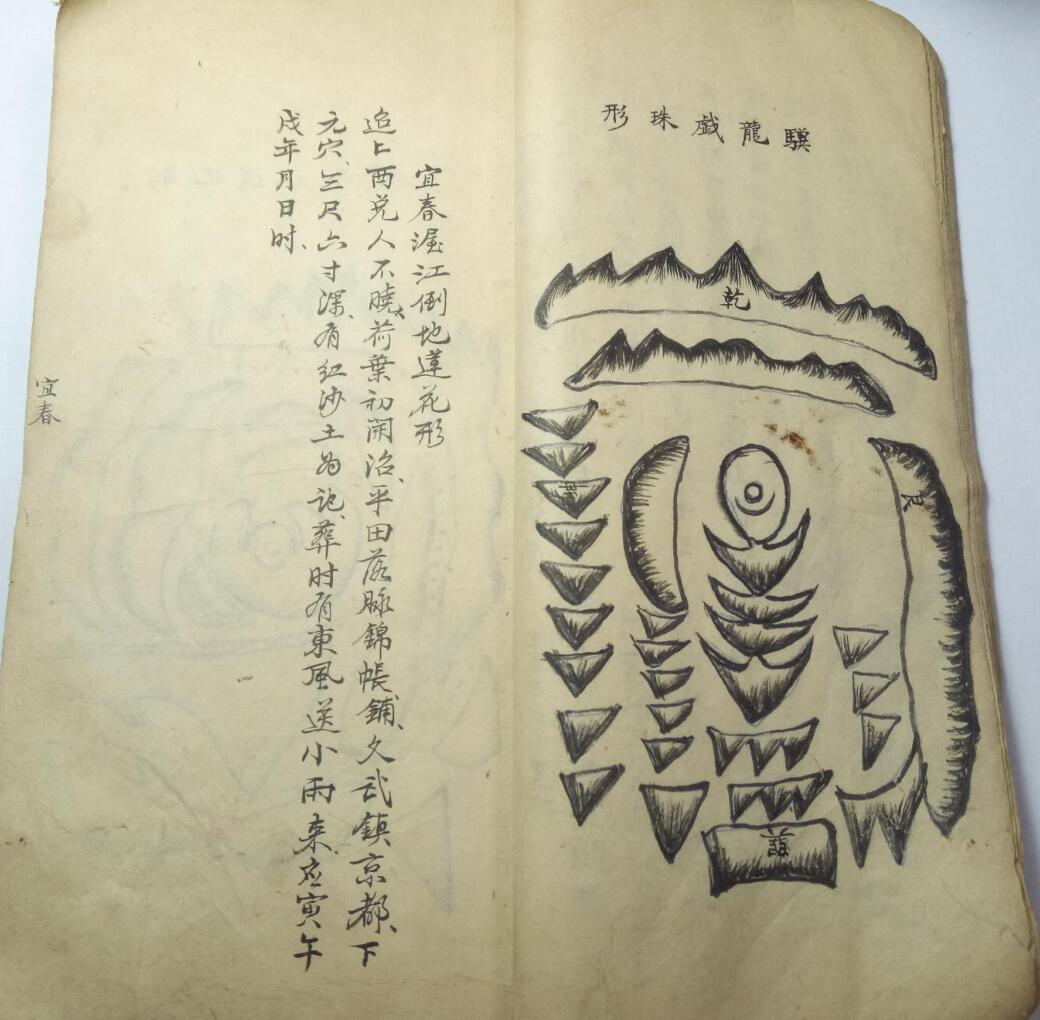 驥龍戯珠形
乾
艮
宜春渥江倒地蓮花形
追上西兑人不曉荷葉初開沿平田落脉錦帳鋪文武鎮京都下
元穴三尺六寸深有红沙土为记葬时有東風送小雨来应寅午
戌年月日时
宜春